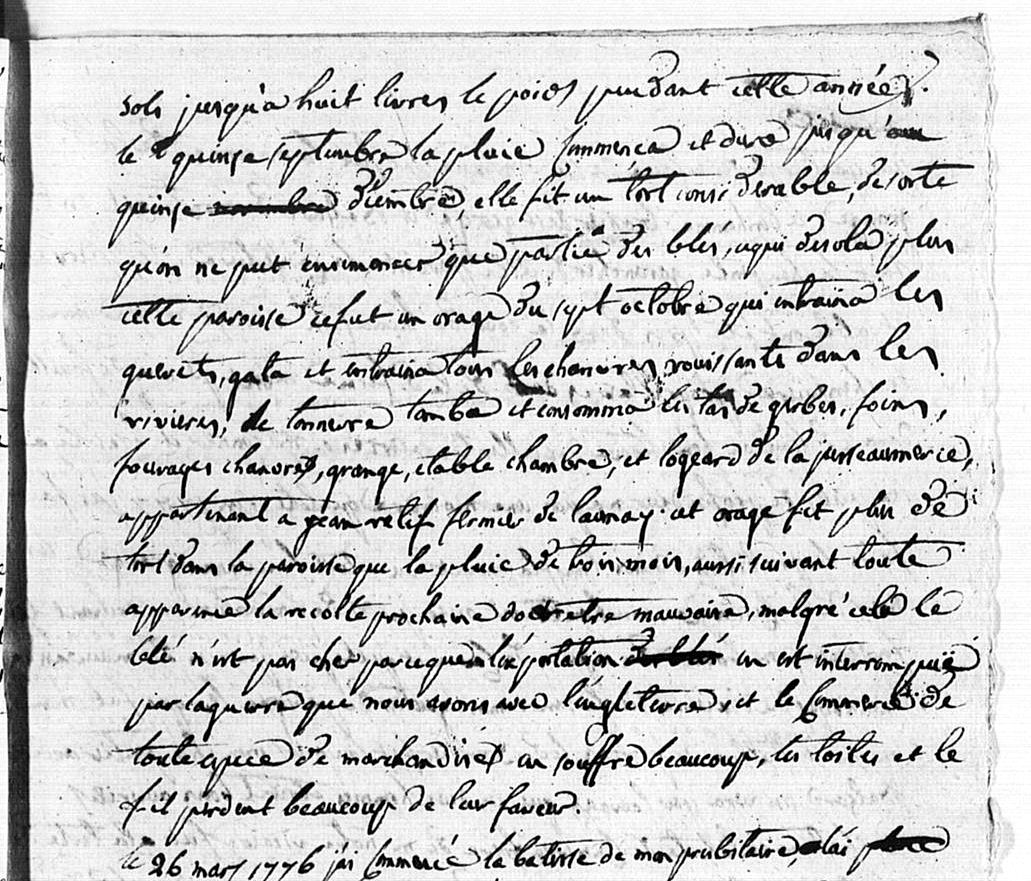 sols jusqu'a huit livres le poids pendant cette année.
le quinse septembre la pluie commenca et dura jusqu'au
quinse novembre décembre elle fit un tort considerable, de sorte
qu'on ne put ensemencer que partie des bles, ce qui desola plus
cette paroisse ce fut un orage du sept octobre qui entraina les
guerets, gata et entraina tous les chanvres rouissants dans les
rivieres, le tonnerre tomba et consomma les tas de gerbes, foins,
fourages chanvres, grange, etable chambre, et logeard de la jusseaumerie,
appartenant a jean retif fermier de launay. cet orage fit plus de
tort dans la paroisse que la pluie de trois mois, aussi suivant toute
apparence la recolte prochaine doit etre mauvaise, malgré cela le
blé n'est pas cher parceque l'exportation des blés en est interrompuë
par la guerre que nous avons avec l'engleterre, et le commerce de
toute espece de marchandises en souffre beaucoup, les toiles et le
fil perdent beaucoup de leur faveur.
le 26 mars 1776 j'ai commencé la batisse de mon presbitaire, j'ai